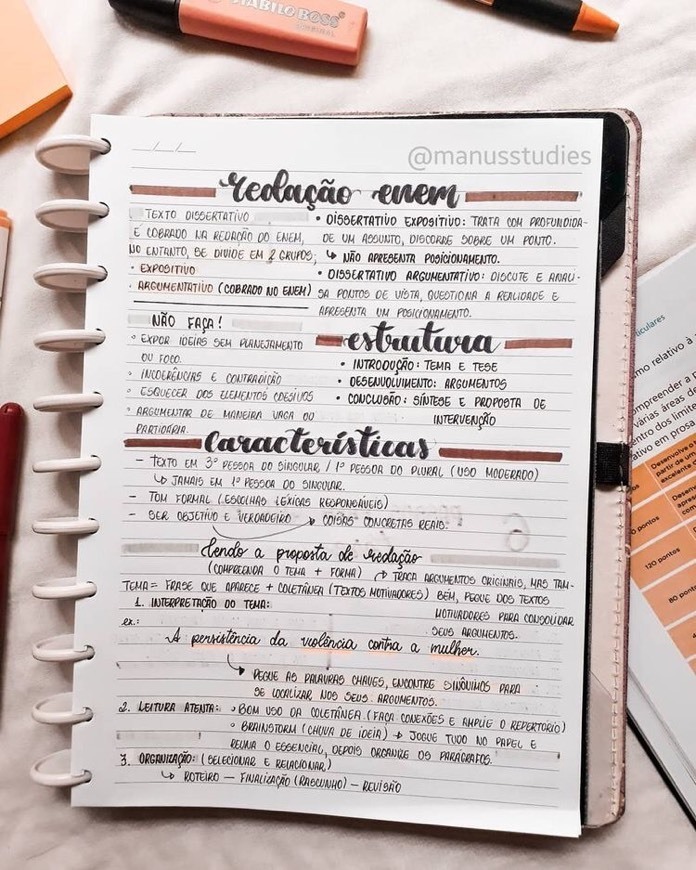 STABILO BOSS
ORIGINAL
@manusstudies
redação enem
TEXTO DISSERTATIVO
É COBRADO NA REDAÇÃO DO ENEM,
NO ENTANTO, SE DIVIDE EM 2 GRUPOS;
• EXPOSITIVO
• ARGUMENTATIVO (COBRADO NO ENEM)
• DISSERTATIVO EXPOSITIVO: TRATA COM PROFUNDIDA-
DE UM ASSUNTO, DISCORRE SOBRE UM PONTO.
↳ NÃO APRESENTA POSICIONAMENTO.
• DISSERTATIVO ARGUMENTATIVO: DISCUTE E ANALI-
SA PONTOS DE VISTA, QUESTIONA A REALIDADE E
APRESENTA UM POSICIONAMENTO.
NÃO FAÇA!
• EXPOR IDEIAS SEM PLANEJAMENTO
OU FOCO.
• INCOERÊNCIAS E CONTRADIÇÃO
• ESQUECER DOS ELEMENTOS COESIVOS
• ARGUMENTAR DE MANEIRA VAGA OU
PARTIDÁRIA.
estrutura
• INTRODUÇÃO: TEMA E TESE
• DESENVOLVIMENTO: ARGUMENTOS
• CONCLUSÃO: SÍNTESE E PROPOSTA DE
INTERVENÇÃO
características
- TEXTO EM 3ª PESSOA DO SINGULAR / 1ª PESSOA DO PLURAL (USO MODERADO)
↳ JAMAIS EM 1ª PESSOA DO SINGULAR.
- TOM FORMAL (ESCOLHAS LEXICAS RESPONSÁVEIS)
- SER OBJETIVO E VERDADEIRO → COISAS CONCRETAS REAIS.
Lendo a proposta de redação
(COMPREENDA O TEMA + FORMA)
→ TRAGA ARGUMENTOS ORIGINAIS, MAS TAM-
TEMA = FRASE QUE APARECE + COLETÂNEA (TEXTOS MOTIVADORES)
BEM, PEGUE DOS TEXTOS
1. INTERPRETAÇÃO DO TEMA:
MOTIVADORES PARA CONSOLIDAR
SEUS ARGUMENTOS.
ex.:
A persistência da violência contra a mulher.
↳ PEGUE AS PALAVRAS CHAVES, ENCONTRE SINÔNIMOS PARA
SE LOCALIZAR NOS SEUS ARGUMENTOS.
2. LEITURA ATENTA: • BOM USO DA COLETÂNEA (FAÇA CONEXÕES E AMPLIE O REPERTÓRIO)
• BRAINSTORM (CHUVA DE IDEIA) → JOGUE TUDO NO PAPEL E
REUNA O ESSENCIAL, DEPOIS ORGANIZE OS PARÁGRAFOS.
3. ORGANIZAÇÃO: (SELECIONAR E RELACIONAR)
↳ ROTEIRO — FINALIZAÇÃO (RASCUNHO) — REVISÃO
iculares
mo relativo à
mpreender a p
várias áreas de
entro dos limit
ativo em prosa
pontos
120 pontos
80 pontos